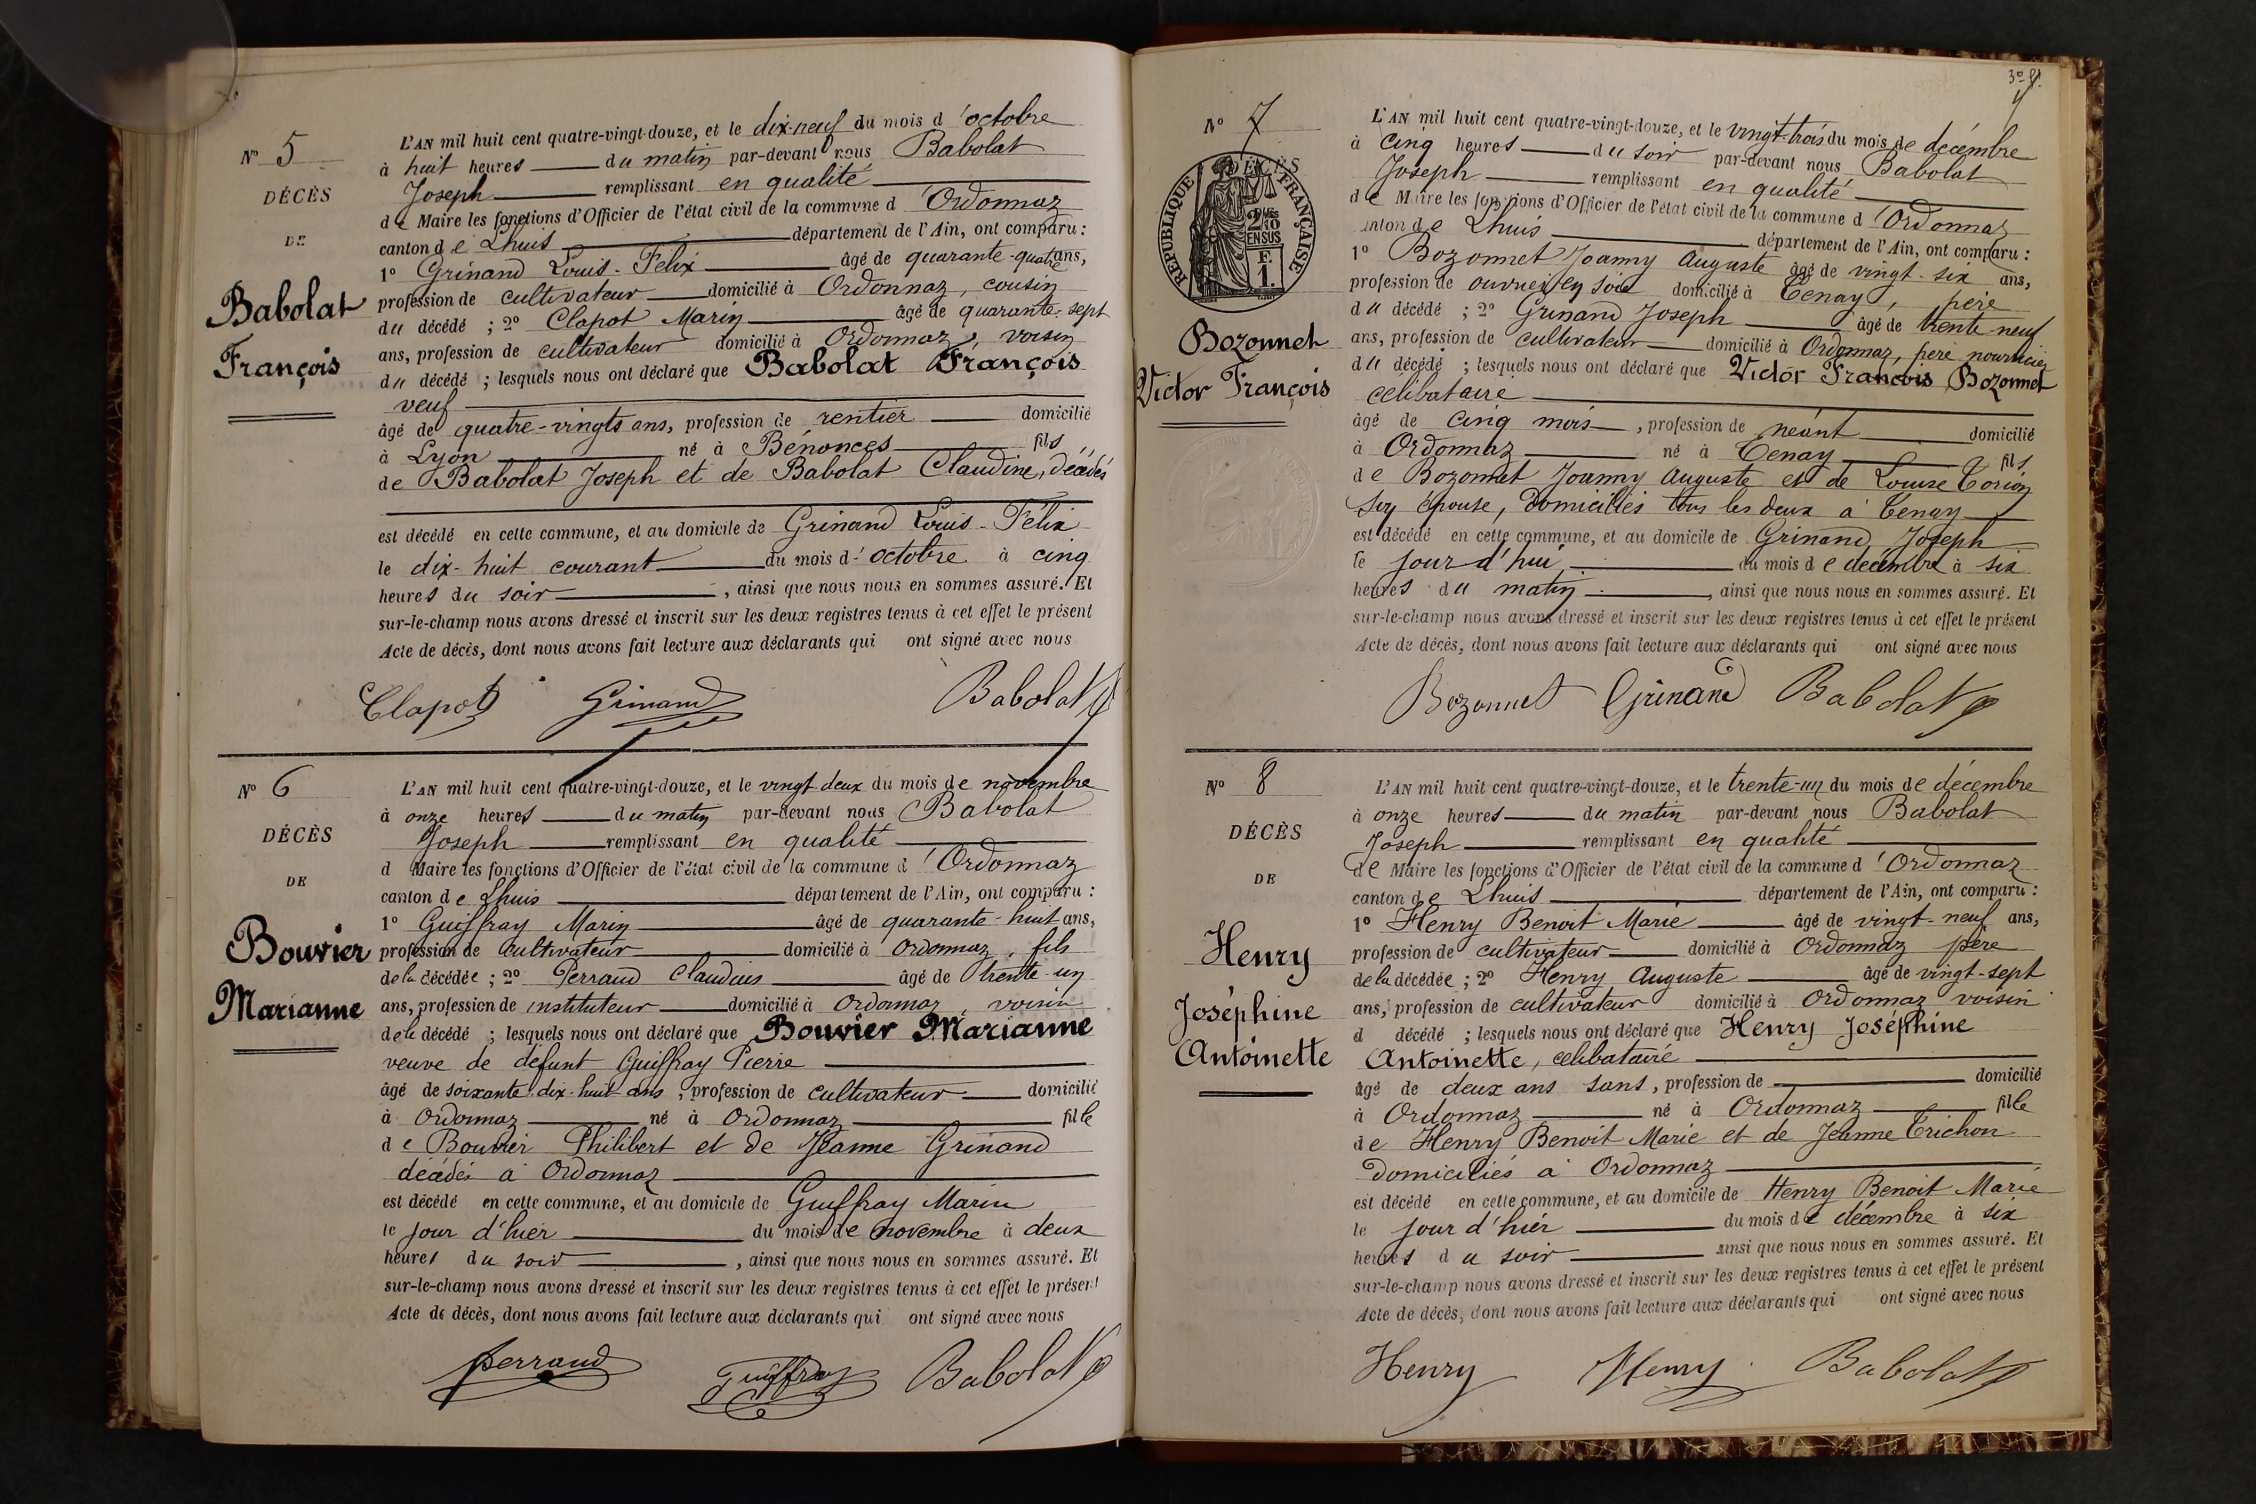 N° 5
DÉCÈS
DE
Babolat
François
L'AN mil huit cent quatre-vingt-douze, et le dix-neuf du mois d'octobre
à huit heures du matin par-devant nous Babolat
Joseph remplissant en qualité
de Maire les fonctions d'Officier de l'état civil de la commune d'Ordonnaz
canton de Lhuis département de l'Ain, ont comparu :
1° Grinand Louis-Félix âgé de quarante-quatre ans,
profession de cultivateur domicilié à Ordonnaz, cousin
du décédé ; 2° Clapot Marin âgé de quarante-sept
ans, profession de cultivateur domicilié à Ordonnaz, voisin
du décédé ; lesquels nous ont déclaré que Babolat François
veuf
âgé de quatre-vingts ans, profession de rentier domicilié
à Lyon né à Bénonces fils
de Babolat Joseph et de Babolat Claudine, décédés
est décédé en cette commune, et au domicile de Grinand Louis-Félix
le dix-huit courant du mois d'octobre à cinq
heures du soir, ainsi que nous nous en sommes assuré. Et
sur-le-champ nous avons dressé et inscrit sur les deux registres tenus à cet effet le présent
Acte de décès, dont nous avons fait lecture aux déclarants qui ont signé avec nous
Clapot Grinand Babolat
N° 6
DÉCÈS
DE
Bouvier
Marianne
L'AN mil huit cent quatre-vingt-douze, et le vingt-deux du mois de novembre
à onze heures du matin par-devant nous Babolat
Joseph remplissant en qualité
d Maire les fonctions d'Officier de l'état civil de la commune d'Ordonnaz
canton de Lhuis département de l'Ain, ont comparu :
1° Guiffray Marin âgé de quarante-huit ans,
profession de cultivateur domicilié à Ordonnaz, fils
de la décédée ; 2° Perraud Claudius âgé de trente-un
ans, profession de instituteur domicilié à Ordonnaz, voisin
de la décédé ; lesquels nous ont déclaré que Bouvier Marianne
veuve de défunt Guiffray Pierre
âgé de soixante dix-huit ans, profession de cultivateur domicilié
à Ordonnaz né à Ordonnaz fille
de Bouvier Philibert et de Jeanne Grinand
décédés à Ordonnaz
est décédé en cette commune, et au domicile de Guiffray Marin
le jour d'hier du mois de novembre à deux
heures du soir, ainsi que nous nous en sommes assuré. Et
sur-le-champ nous avons dressé et inscrit sur les deux registres tenus à cet effet le présent
Acte de décès, dont nous avons fait lecture aux déclarants qui ont signé avec nous
Perraud Guiffray Babolat
N° 7
DÉCÈS
RÉPUBLIQUE FRANÇAISE
2/10
EN SUS
F.
1.
Bozonnet
Victor François
L'AN mil huit cent quatre-vingt-douze, et le vingt-trois du mois de décembre
à cinq heures du soir par-devant nous Babolat
Joseph remplissant en qualité
de Maire les fonctions d'Officier de l'état civil de la commune d'Ordonnaz
canton de Lhuis département de l'Ain, ont comparu :
1° Bozonnet Joanny Auguste âgé de vingt-six ans,
profession de ouvrier en soie domicilié à Tenay, père
du décédé ; 2° Grinand Joseph âgé de trente-neuf
ans, profession de cultivateur domicilié à Ordonnaz, père nourricier
du décédé ; lesquels nous ont déclaré que Victor François Bozonnet
célibataire
âgé de cinq mois, profession de néant domicilié
à Ordonnaz né à Tenay fils
de Bozonnet Joanny Auguste et de Louise
son épouse, domiciliés tous les deux à Tenay
est décédé en cette commune, et au domicile de Grinand Joseph
le jour d'hui, du mois de décembre à six
heures du matin, ainsi que nous nous en sommes assuré. Et
sur-le-champ nous avons dressé et inscrit sur les deux registres tenus à cet effet le présent
Acte de décès, dont nous avons fait lecture aux déclarants qui ont signé avec nous
Bozonnet Grinand Babolat
N° 8
DÉCÈS
DE
Henry
Joséphine
Antoinette
L'AN mil huit cent quatre-vingt-douze, et le trente-un du mois de décembre
à onze heures du matin par-devant nous Babolat
Joseph remplissant en qualité
de Maire les fonctions d'Officier de l'état civil de la commune d'Ordonnaz
canton de Lhuis département de l'Ain, ont comparu :
1° Henry Benoit Marie âgé de vingt-neuf ans,
profession de cultivateur domicilié à Ordonnaz père
de la décédée ; 2° Henry Auguste âgé de vingt-sept
ans, profession de cultivateur domicilié à Ordonnaz voisin
d décédé ; lesquels nous ont déclaré que Henry Joséphine
Antoinette, célibataire
âgé de deux ans sans, profession de domicilié
à Ordonnaz né à Ordonnaz fille
de Henry Benoit Marie et de Jeanne Trichon
domiciliés à Ordonnaz
est décédé en cette commune, et au domicile de Henry Benoit Marie
le jour d'hier du mois de décembre à six
heures du soir ainsi que nous nous en sommes assuré. Et
sur-le-champ nous avons dressé et inscrit sur les deux registres tenus à cet effet le présent
Acte de décès, dont nous avons fait lecture aux déclarants qui ont signé avec nous
Henry Henry Babolat